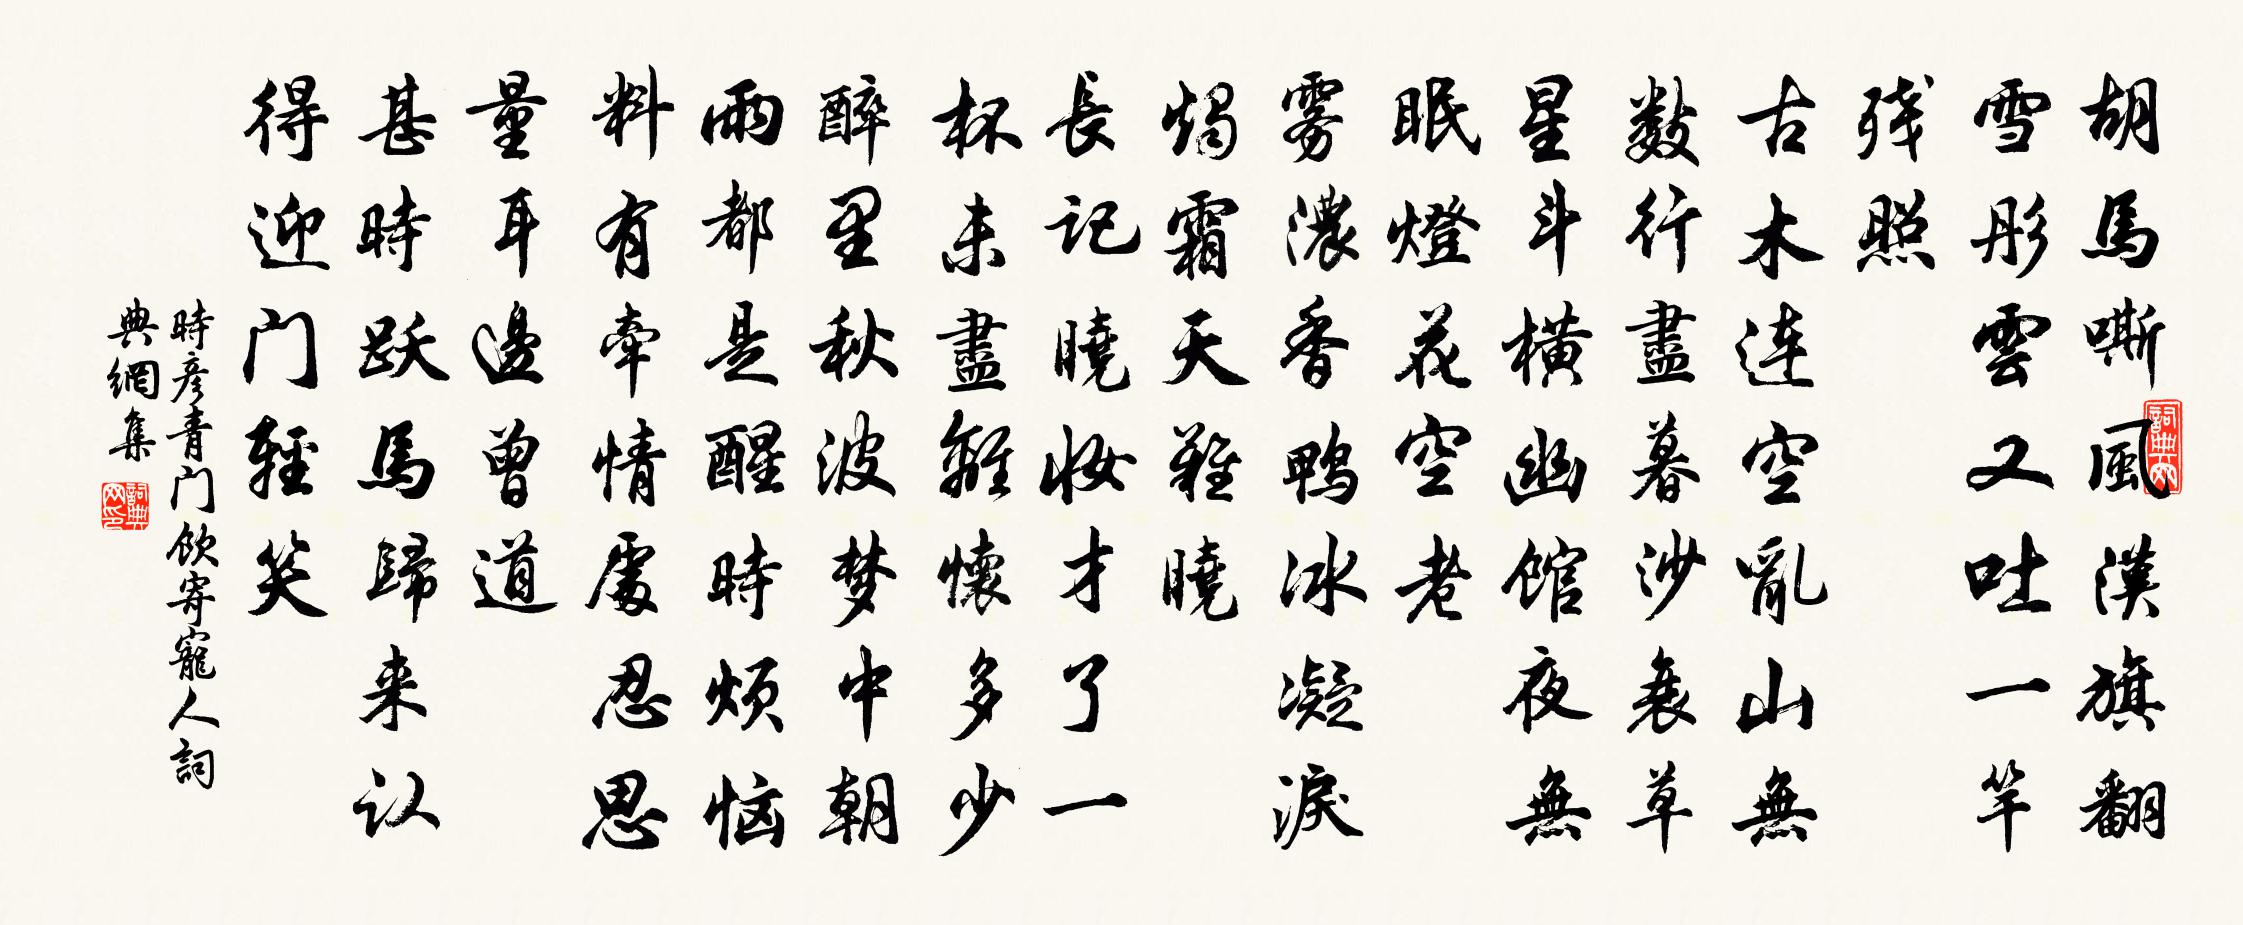 胡馬嘶風漢旗翻
雪彤雲又吐一竿
残照
古木连空亂山無
数行盡暮沙衰草
星斗横幽馆夜無
眠燈花空老
雾濃香鸭冰凝淚
燭霜天難曉
長记曉妆才了一
杯未盡離懷多少
醉里秋波梦中朝
雨都是醒時烦恼
料有牽情處忍思
量耳邊曾道
甚時跃馬歸来认
得迎门輕笑
時彦青门饮寄寵人詞
典網集
詞典网
詞典网印